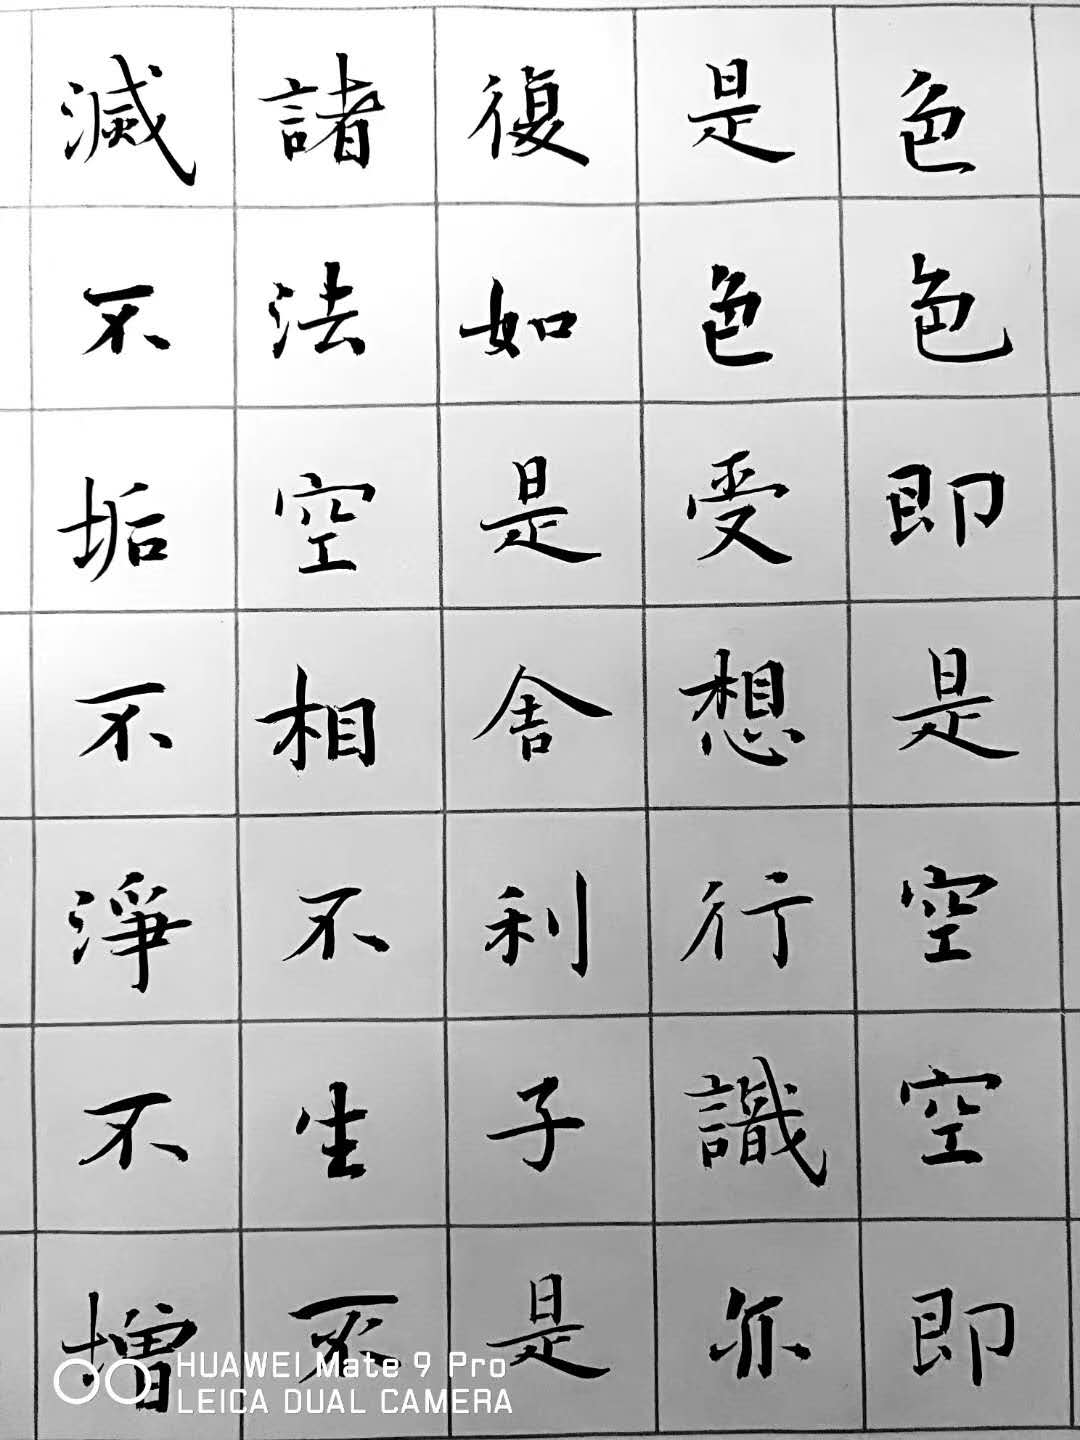 色色即是空空即
是色受想行識亦
復如是舍利子是
諸法空相不生不
滅不垢不淨不增
HUAWEI Mate 9 Pro
LEICA DUAL CAMERA